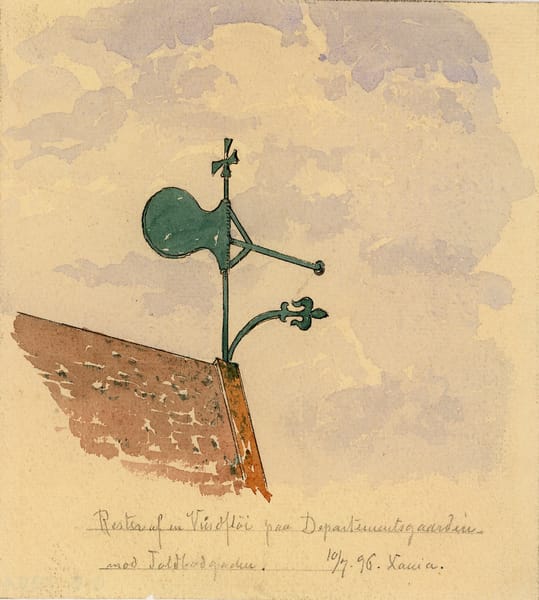 Rester af en Vindfløi paa Departementsgaarden
mod Toldbodgaden. 10/7. 96. Xania.